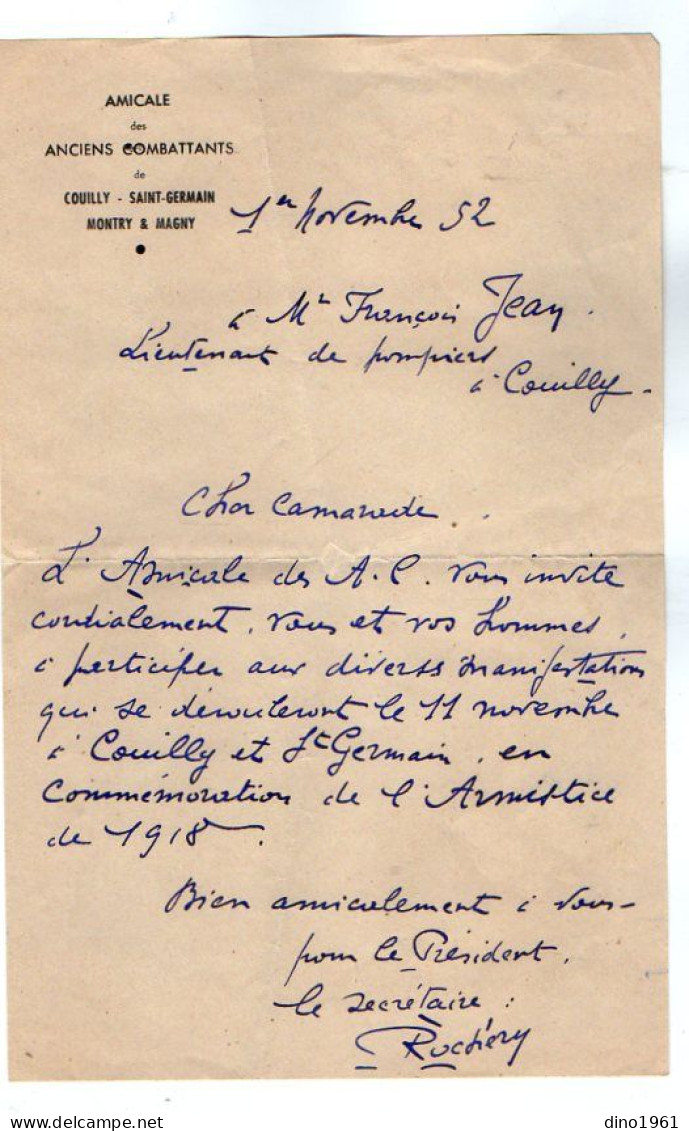 AMICALE
des
ANCIENS COMBATTANTS
de
COUILLY - SAINT-GERMAIN
MONTRY & MAGNY
1er Novembre 52
à Mr François Jean.
Lieutenant de pompiers
à Couilly.
Cher Camarade.
L'Amicale des A.C. vous invite
cordialement, vous et vos hommes,
à participer aux diverses manifestations
qui se dérouleront le 11 novembre
à Couilly et St Germain, en
Commémoration de l'Armistice
de 1918.
Bien amicalement à vous-
pour le Président,
le secrétaire :
Rochéry
dino1961